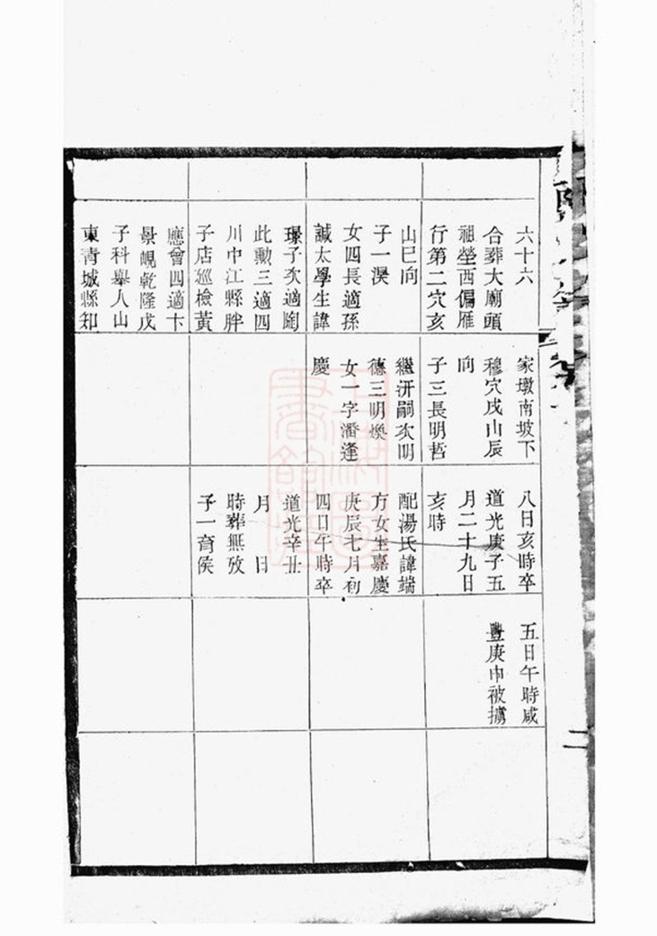 六十六
合葬大廟頭
祖塋西偏雁
行第二穴亥
山巳向
子一淏
女四長適孫
誠太學生諱
璟子次適陶
此勲三適四
川中江縣胖
子店巡檢黃
應會四適卞
景峴乾隆戊
子科舉人山
東青城縣知
家墩南坡下
穆穴戌山辰
向
子三長明哲
繼汧嗣次明
德三明煥
女一字潘逢
慶
八日亥時卒
道光庚子五
月二十九日
亥時
配湯氏諱端
方女生嘉慶
庚辰七月初
四日午時卒
道光辛丑
月 日
時葬無攷
子一育侯
五日午時咸
豐庚申被擄
二